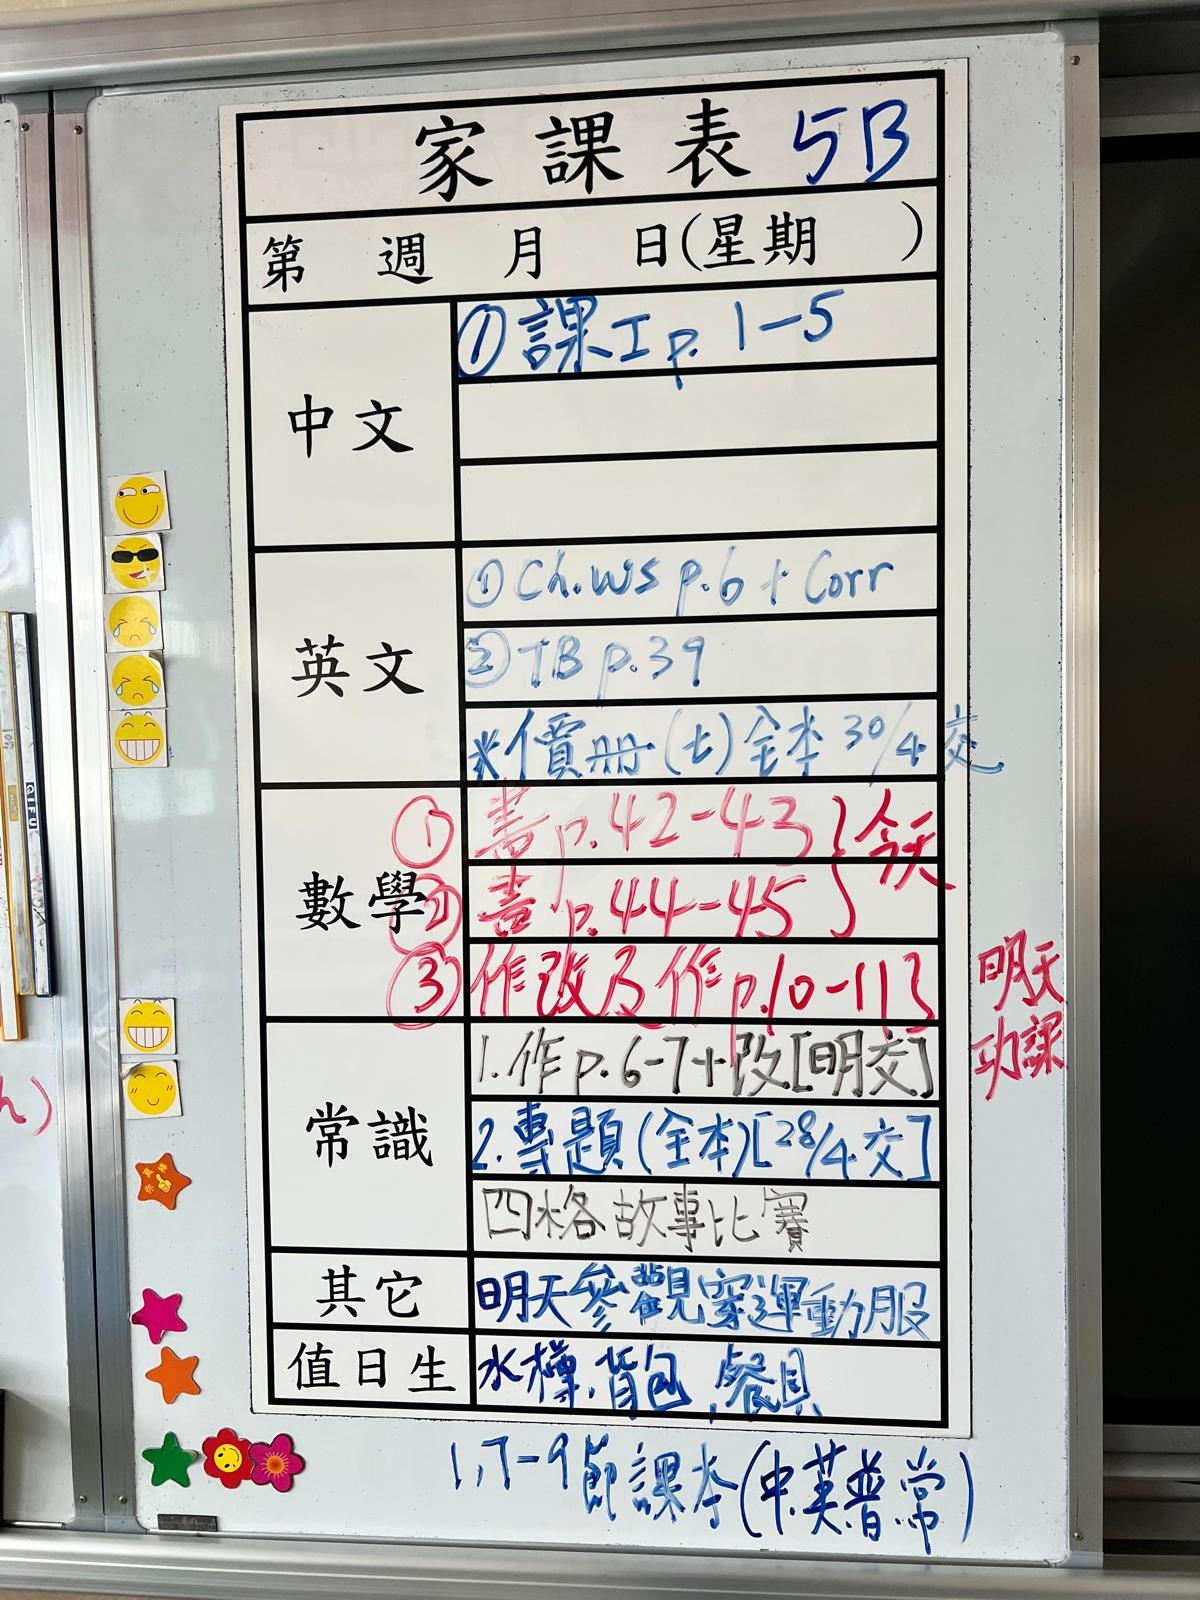 家課表 5B
第 週 月 日(星期 )
中文
① 課工p. 1-5
英文
① Ch.WS p.6 + Corr
② TB p.39
※價冊(七)全本 30/4 交
數學
① 書p.42-43 } 今天
② 書p.44-45
③ 作改及作p.10-11}
明天
功課
常識
1.作p.6-7+改[明交]
2.專題(全本)[28/4交]
四格故事比賽
其它
明天參觀穿運動服
值日生
水樽.背包.餐具
1,7-9節課本(中.英.普.常)